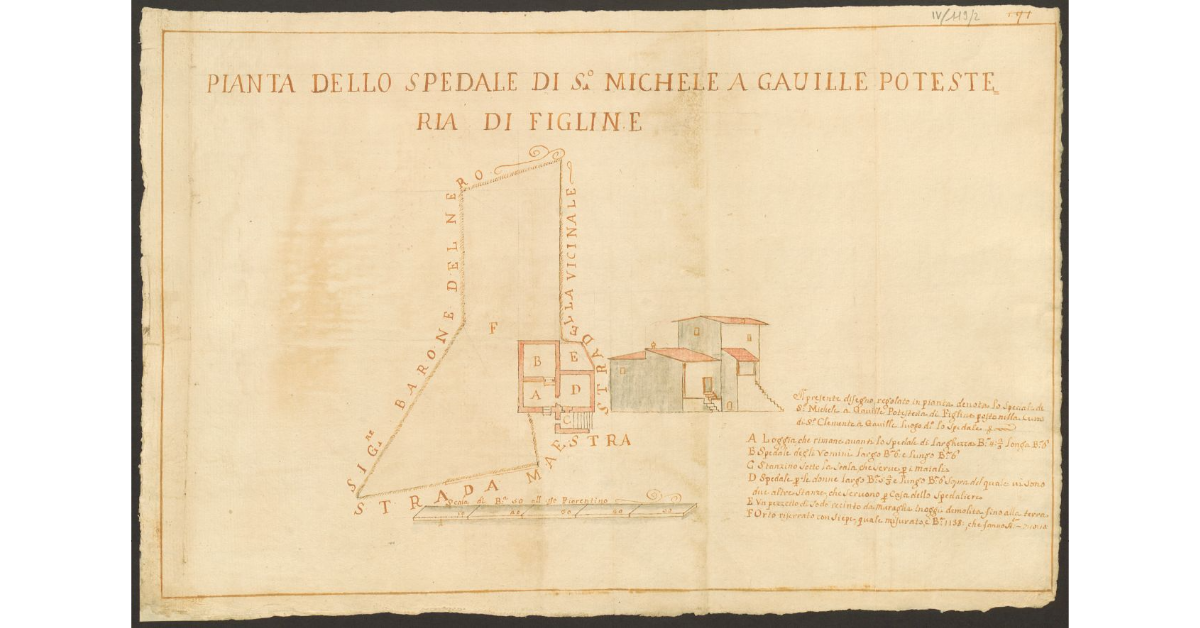 IV/119/2
191
PIANTA DELLO SPEDALE DI Sº. MICHELE A GAUILLE POTESTE
RIA DI FIGLINE
SIG.RE BARONE DEL NERO
STRADELLA VICINALE
F
B
E
A
D
C
STRADA MAESTRA
Scala di Bª 50 Fiorentino
10 20 30 40 50
Il presente disegno, regolato in pianta denota lo Spedale di
Sº. Michele a Gauille Potesteria di Figline posto nella
di Sº. Clemente a Gauille luogo dº. lo Spedale
A Loggia che rimane auanti lo Spedale di Larghezza Bª 6 Longa Bª 8
B Spedale degli Vomini largo Bª 6 e lungo Bª 6
C Stanzino sotto la Scala che serue p i maiali
D Spedale p le donne largo Bª 5 e lungo Bª 6 sopra del quale ui sono
due altre stanze, che seruano p Casa dello Spedaliere
E Vn pezzetto di sodo cinto da muraglia hoggi demolita fino alla terra
F Orto riserrato con Siepi, quale misurato, è Bª 1138 che fanno